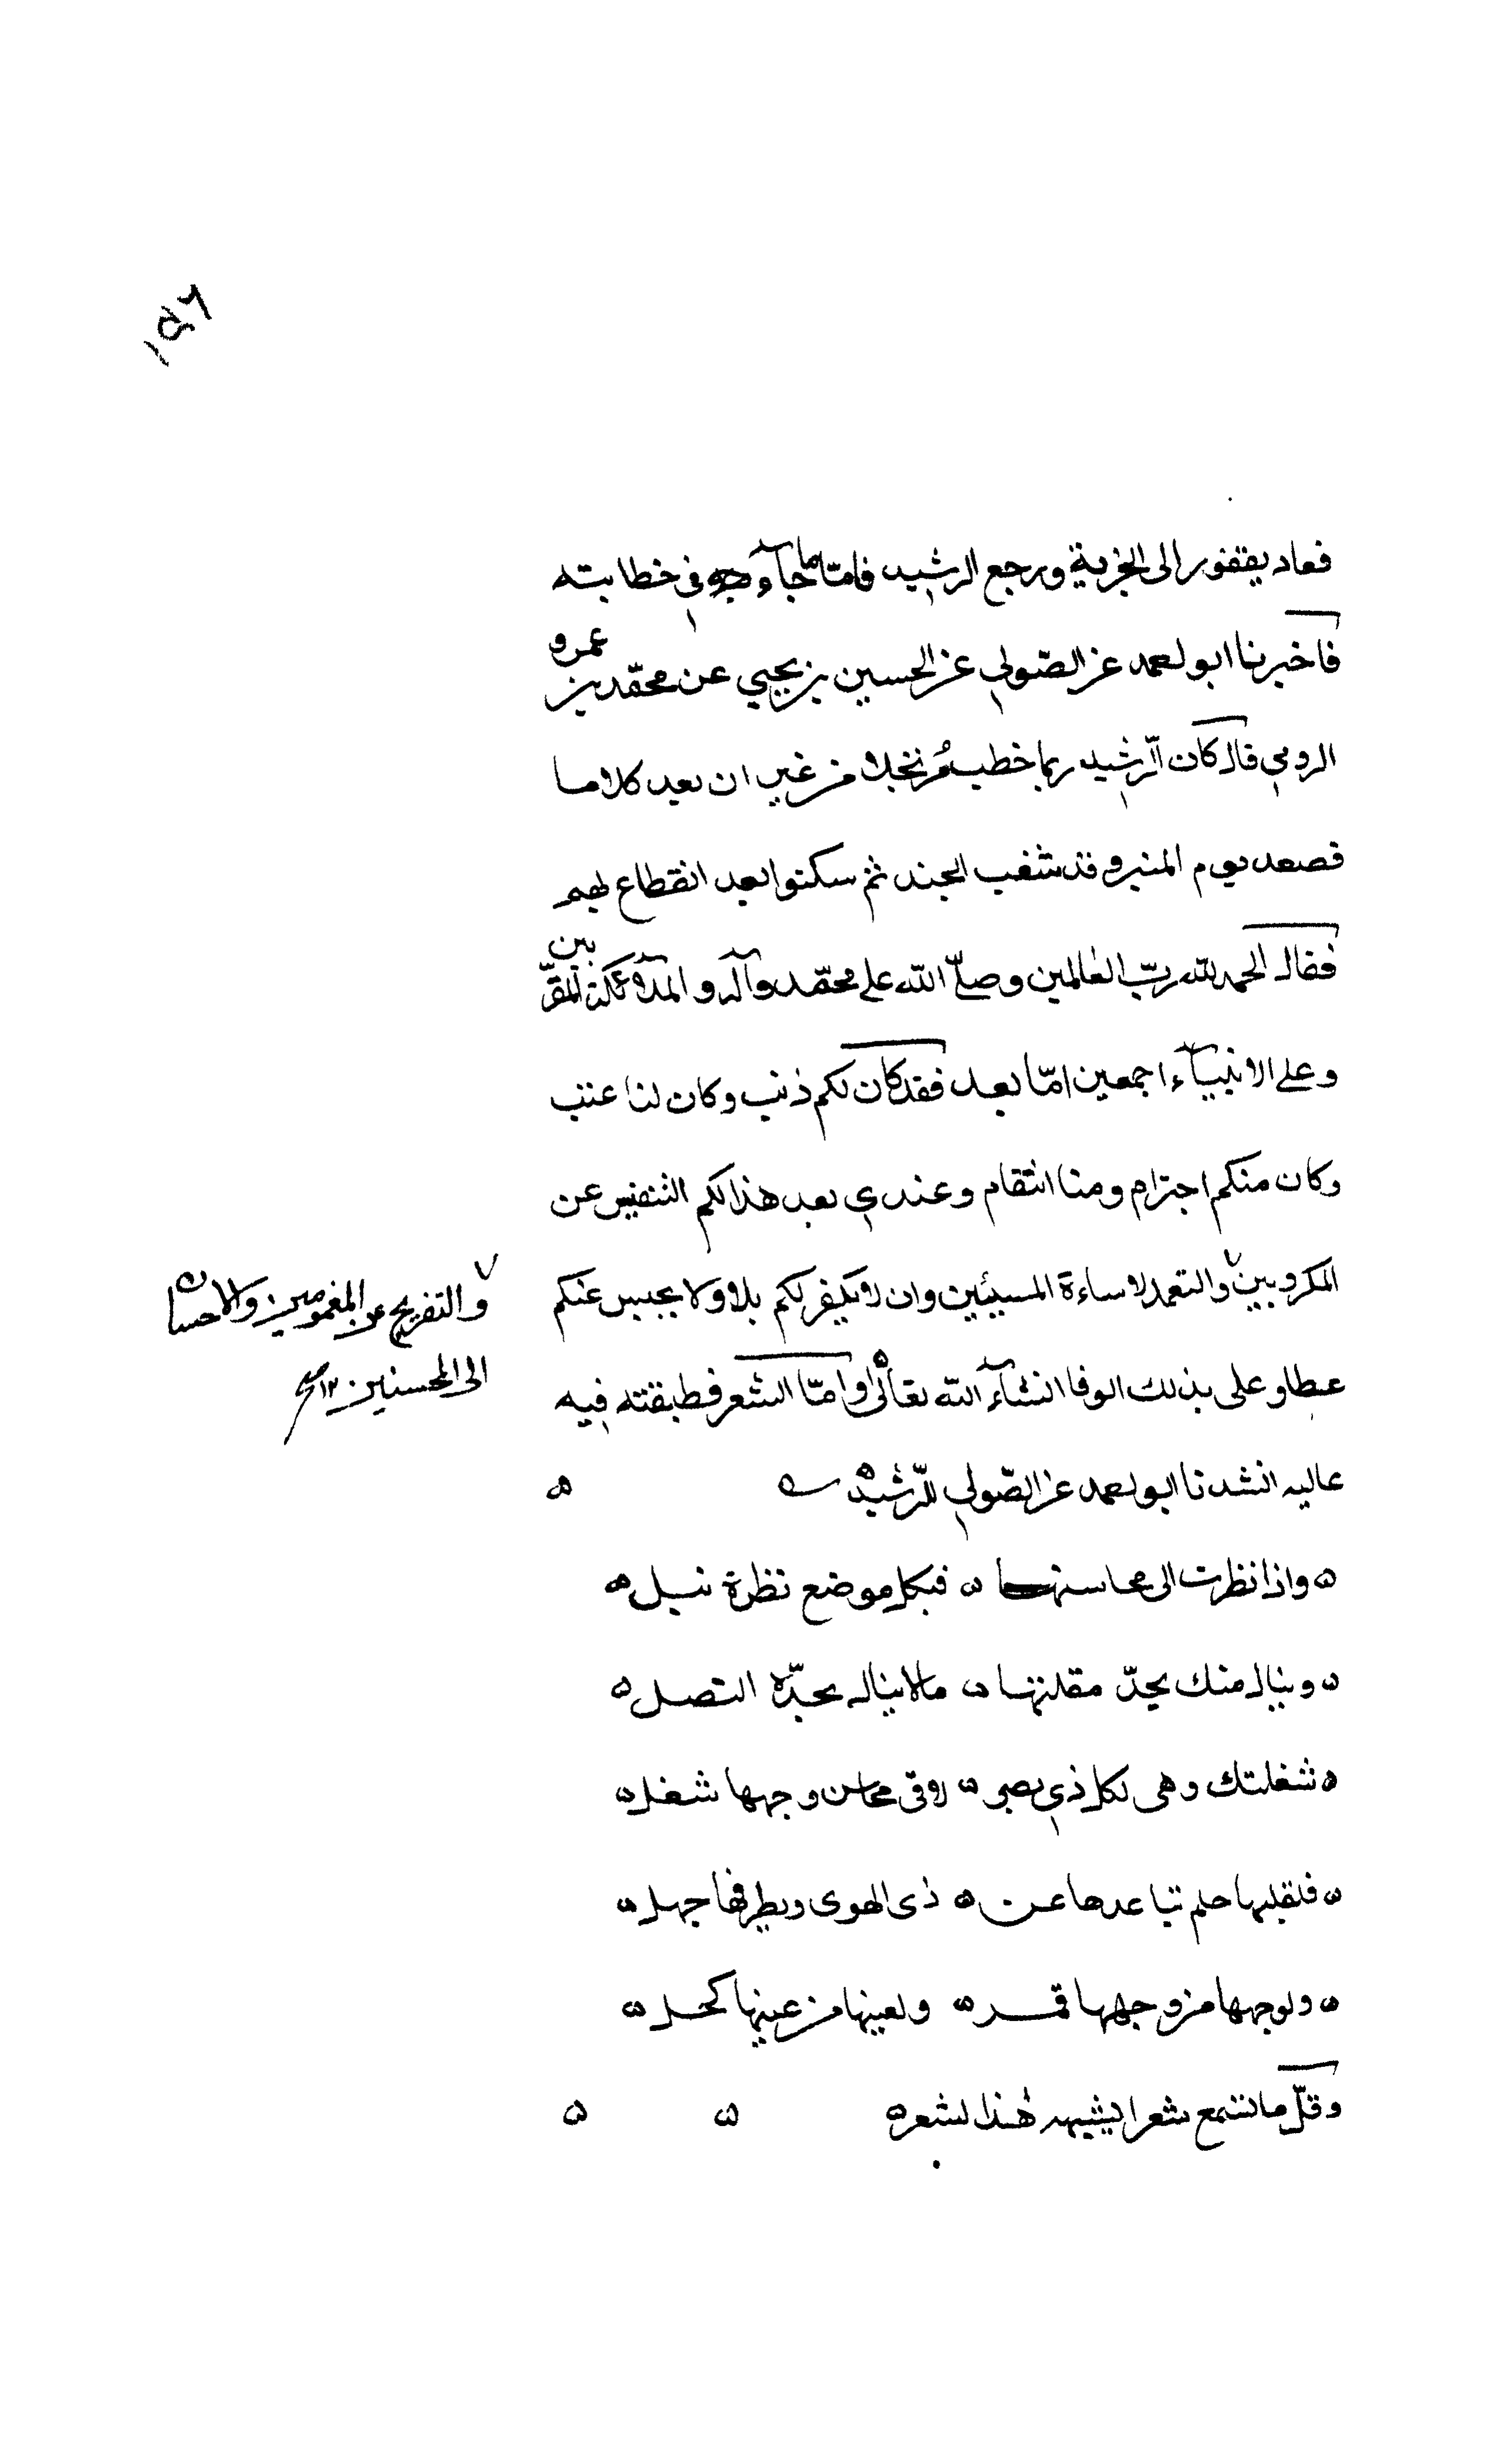 ١٥٦
فعاد يقفور الى الجزية ورجع الرشيد فامّا ما جآء في خطابته
فاخبرنا ابو احمد عن الصّولي عن الحسين بن يحيي عن محمّد بن عمرو
الرومي قال كان الرّشيد ربما خطب مرتجلا من غير ان يعيد كلاما
فصعد يوم المنبر وقد شغب الجند ثم سكنوا بعد انقطاع لهم
فقال الحمد لله ربّ العالمين وصلّى الله على محمّد وآله و الملآئكة المقرّبين
وعلى الانبيآء اجمعين امّا بعد فقد كان لكم ذنب وكان لنا عتب
وكان منكم اجترام ومنا انتقام وعندي بعد هذا لكم التنفيس عن
المكروبين والتعمد لاساءة المسيئين وان لا يكفر لكم بلاو ولا يحبس عنكم
والتفريح عن المغمومين والاحسان
الى المحسنين ١٢
عطاو على بذلك الوفا انشآء الله تعالى وامّا الشعر فطبقته فيه
عاليه انشدنا ابو احمد عن الصّولي للرّشيد
واذا نظرت الى محاسنها ٥ فبكل موضع نظرة نبل ٥
٥ وينال منك بحدّ مقلتها ٥ مالا ينال بحدّه النصل ٥
٥ شغلتك وهى لكل ذي بصر ٥ لاقى محاسن وجهها شغل ٥
٥ فلقلبها حلم تباعدها عن ٥ ذى الهوى وبطرفها جهل ٥
٥ ولوجهها من وجهها قمر ٥ ولعينها من عينها كحل ٥
وقلّ ما تسمع شعرا يشبه هذا لشعره ٥ ٥